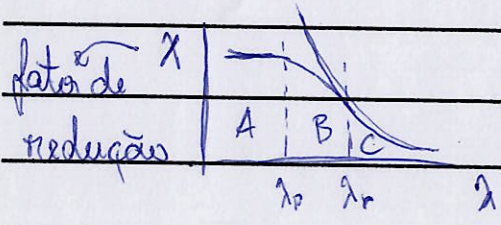 fator de χ
redução
A B C
λp λr λ